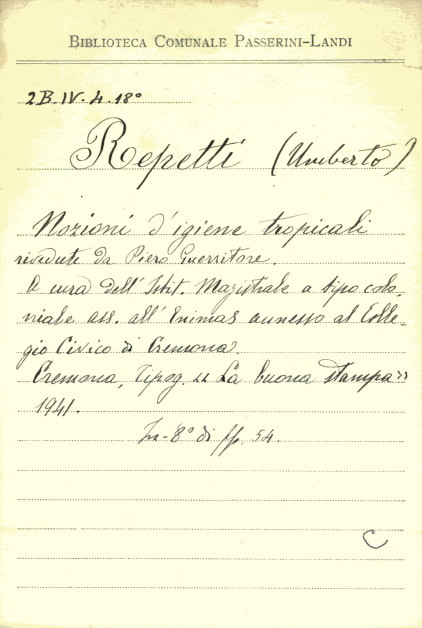 BIBLIOTECA COMUNALE PASSERINI-LANDI
2B.IV.4.18º
Repetti (Umberto)
Nozioni d'igiene tropicali
rivedute da Piero Guerritore.
A cura dell'Istit. Magistrale a tipo colo-
niale ass. all'Enimas annesso al Colle-
gio Civico di Cremona.
Cremona, Tipog. "La buona stampa"
1941.
In-8º di ff. 54.
C